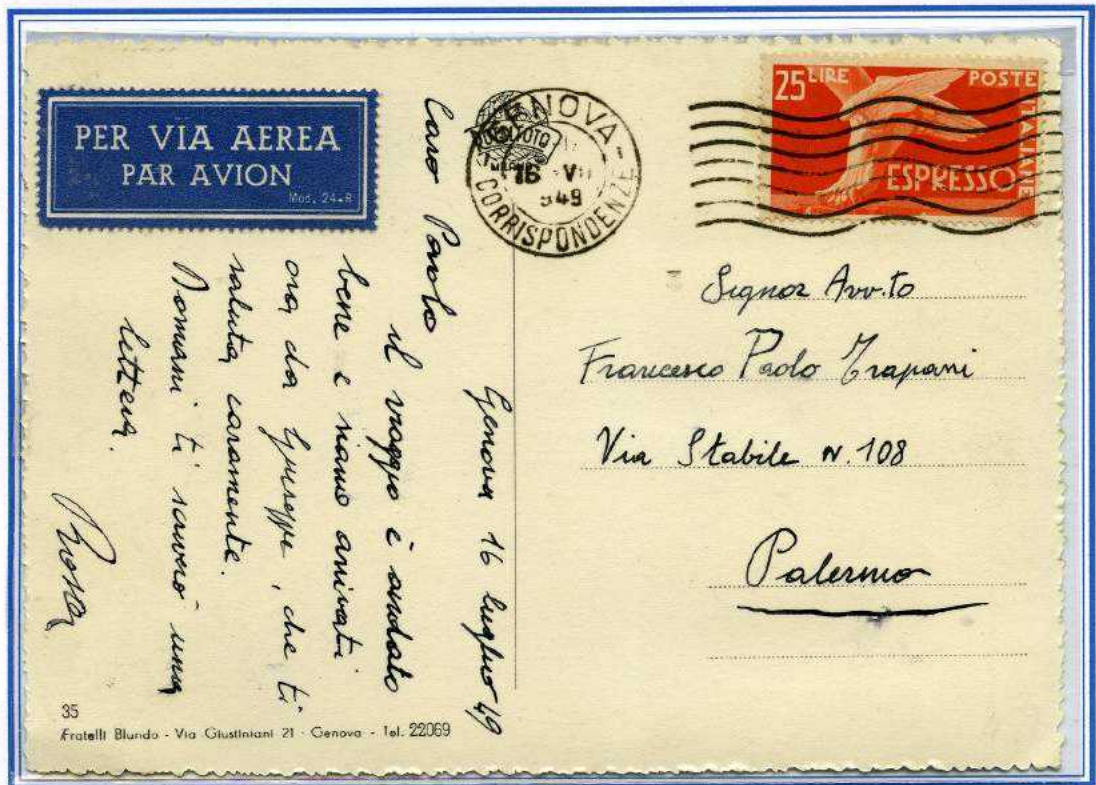 PER VIA AEREA
PAR AVION
Mod. 24-8
GENOVA
CORRISPONDENZE
16 VII
949
25 LIRE POSTE ITALIANE
ESPRESSO
Genova 16 luglio 49
Caro Paolo
il viaggio è andato
bene e siamo arivati
ora da Giuseppe, che ti
saluta caramente.
Domani ti scriverò una
lettera.
Signor Avv.to
Francesco Paolo Trapani
Via Stabile N. 108
Palermo
35
Fratelli Blundo - Via Giustiniani 21 - Genova - Tel. 22069